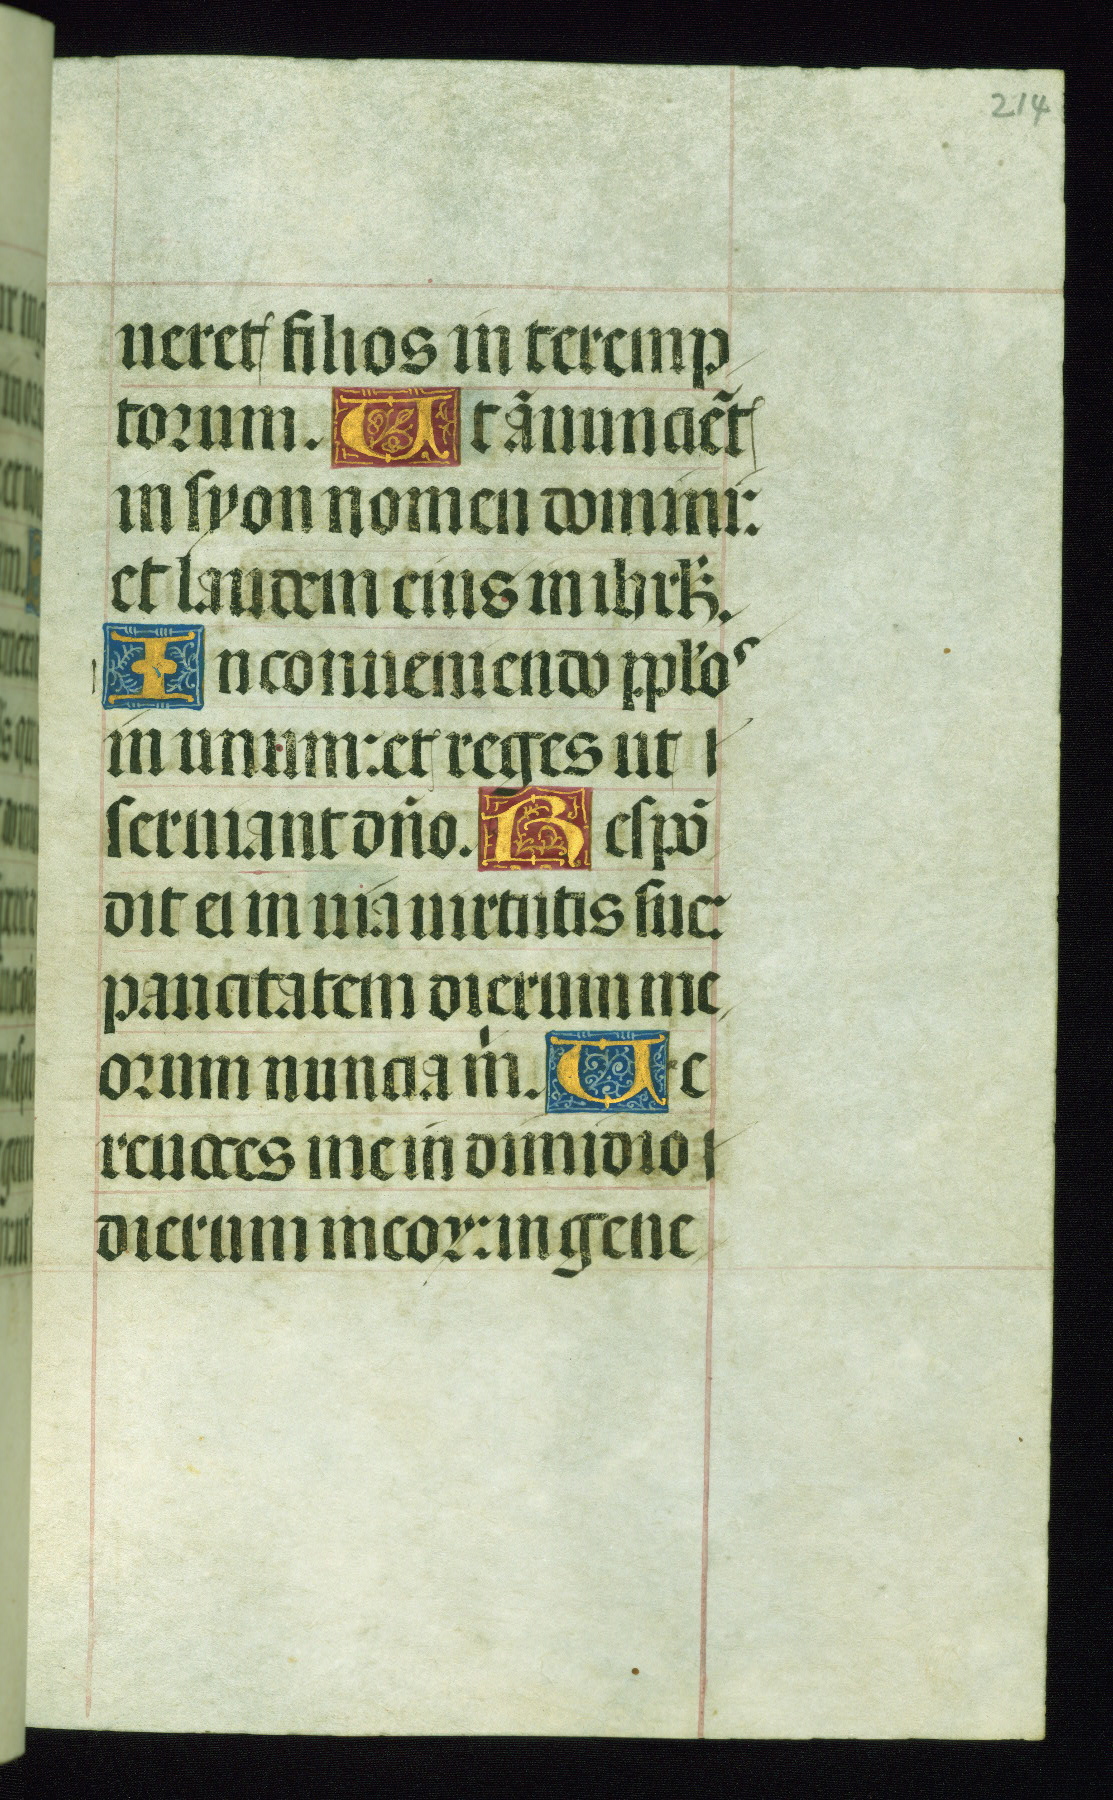 214
ueret filios interemp
torum. Ut ānunciēt
in syon nomen domini:
et laudem eius in ihrlm̄.
In conueniendo ppl̄os
in unum: et reges ut
seruiant dn̄o. Respō
dit ei in uia uirtutis sue:
paucitatem dierum me
orum nuncia m̄.  Ne
reuoces me in dimidio
dierum meoꝝ: in gene